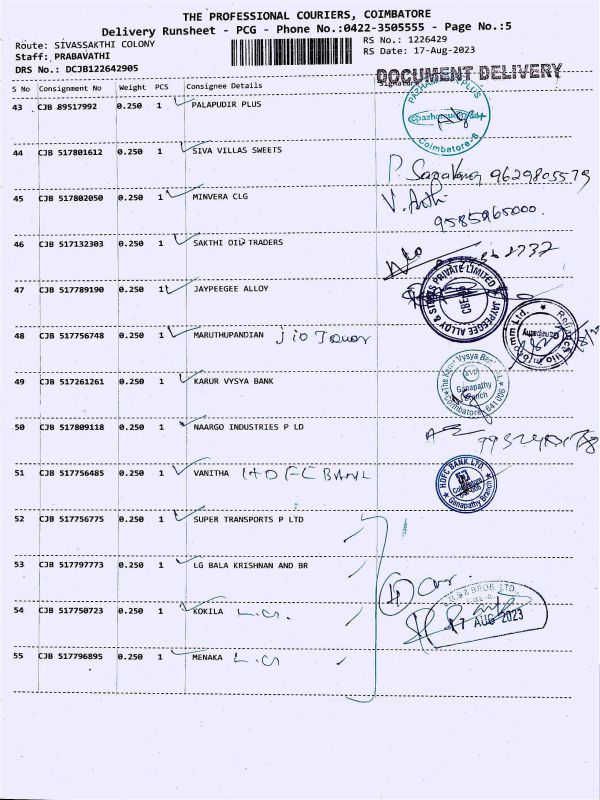 THE PROFESSIONAL COURIERS, COIMBATORE
Delivery Runsheet - PCG - Phone No.:0422-3505555 - Page No.:5
Route: SIVASSAKTHI COLONY RS No.: 1226429
Staff: PRABAVATHI RS Date: 17-Aug-2023
DRS No.: DCJB122642905
DOCUMENT DELIVERY
S No Consignment No Weight PCS Consignee Details Signature
43 CJB 89517992 0.250 1 PALAPUDIR PLUS
Coimbatore-6
44 CJB 517801612 0.250 1 SIVA VILLAS SWEETS
9629805579
45 CJB 517802050 0.250 1 MINVERA CLG
V.
9585965000.
46 CJB 517132303 0.250 1 SAKTHI OIL TRADERS
47 CJB 517789190 0.250 1 JAYPEEGEE ALLOY
JAYPEEGEE ALLOY & STEELS PRIVATE LIMITED
CBE
48 CJB 517756748 0.250 1 MARUTHUPANDIAN Jio Tower
49 CJB 517261261 0.250 1 KARUR VYSYA BANK
The Karur Vysya Bank Ltd.
Ganapathy
Branch
Coimbatore 641 006
50 CJB 517809118 0.250 1 NAARGO INDUSTRIES P LD
51 CJB 517756485 0.250 1 VANITHA HDFC BANK
HDFC BANK LTD
Ganapathy Branch
52 CJB 517756775 0.250 1 SUPER TRANSPORTS P LTD
53 CJB 517797773 0.250 1 LG BALA KRISHNAN AND BR
54 CJB 517750723 0.250 1 KOKILA L.G.
17 AUG 2023
55 CJB 517796895 0.250 1 MENAKA L.G